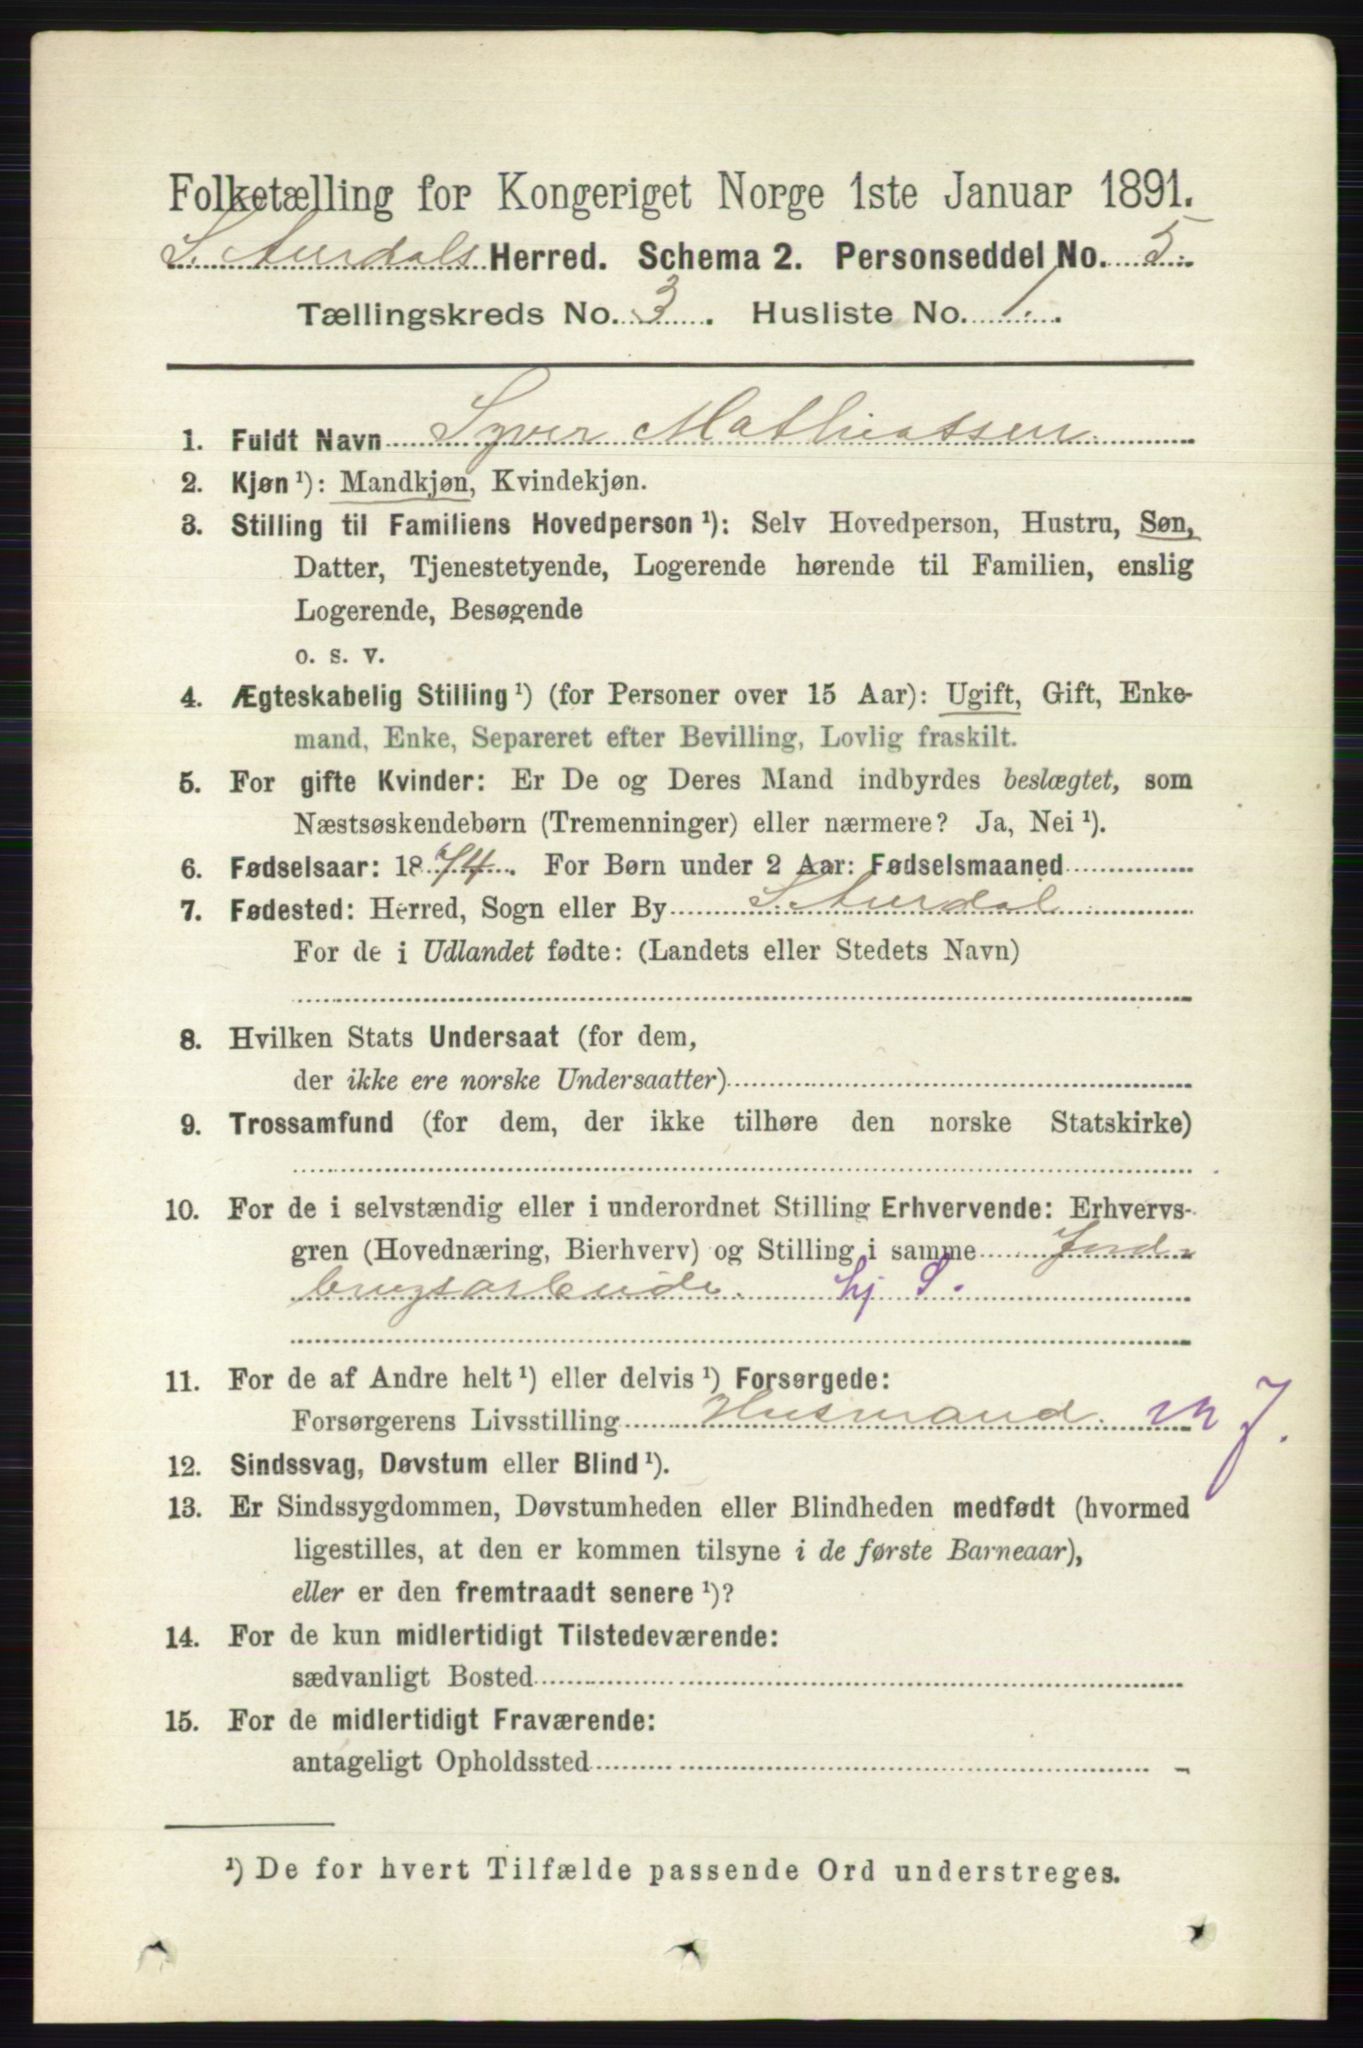 Folketælling for Kongeriget Norge 1ste Januar 1891.
S. Aurdals Herred. Schema 2. Personseddel No. 5.
Tællingskreds No. 3. Husliste No. 1.
1. Fuldt Navn Syver Mathiassen
2. Kjøn ¹): Mandkjøn, Kvindekjøn.
3. Stilling til Familiens Hovedperson ¹): Selv Hovedperson, Hustru, Søn,
Datter, Tjenestetyende, Logerende hørende til Familien, enslig
Logerende, Besøgende
o. s. v.
4. Ægteskabelig Stilling ¹) (for Personer over 15 Aar): Ugift, Gift, Enke-
mand, Enke, Separeret efter Bevilling, Lovlig fraskilt.
5. For gifte Kvinder: Er De og Deres Mand indbyrdes beslægtet, som
Næstsøskendebørn (Tremenninger) eller nærmere? Ja, Nei ¹).
6. Fødselsaar: 1874. For Børn under 2 Aar: Fødselsmaaned
7. Fødested: Herred, Sogn eller By S. Aurdal
For de i Udlandet fødte: (Landets eller Stedets Navn)
8. Hvilken Stats Undersaat (for dem,
der ikke ere norske Undersaatter)
9. Trossamfund (for dem, der ikke tilhøre den norske Statskirke)
10. For de i selvstændig eller i underordnet Stilling Erhvervende: Erhvervs-
gren (Hovednæring, Bierhverv) og Stilling i samme Jord-
brugsarbeide. hj S.
11. For de af Andre helt ¹) eller delvis ¹) Forsørgede:
Forsørgerens Livsstilling Husmand m J.
12. Sindssvag, Døvstum eller Blind ¹).
13. Er Sindssygdommen, Døvstumheden eller Blindheden medfødt (hvormed
ligestilles, at den er kommen tilsyne i de første Barneaar),
eller er den fremtraadt senere ¹)?
14. For de kun midlertidigt Tilstedeværende:
sædvanligt Bosted
15. For de midlertidigt Fraværende:
antageligt Opholdssted
¹) De for hvert Tilfælde passende Ord understreges.